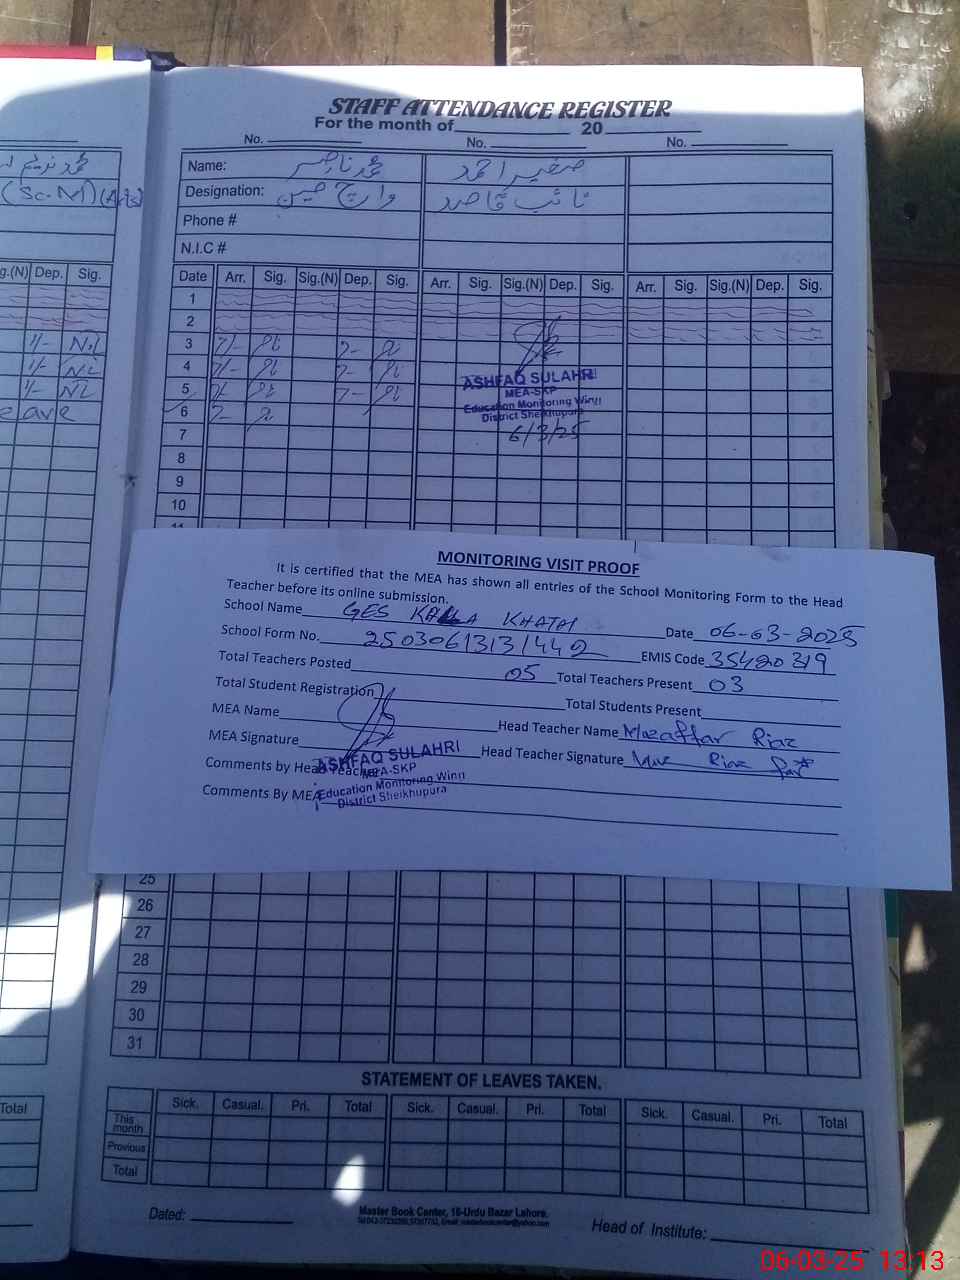 STAFF ATTENDANCE REGISTER
For the month of 20
No. No. No.
Name: محمد ناصر صغیر احمد
Designation: نائب قاصد
Phone #
N.I.C #
(Sc.M) (Arts)
g.(N) Dep. Sig.
Date Arr. Sig. Sig.(N) Dep. Sig. Arr. Sig. Sig.(N) Dep. Sig. Arr. Sig. Sig.(N) Dep. Sig.
1
2
3
4
5
6
7
8
9
10
11
ASHFAQ SULAHRI
MEA-SKP
Education Monitoring Wing
District Sheikhupura
6/3/25
MONITORING VISIT PROOF
It is certified that the MEA has shown all entries of the School Monitoring Form to the Head
Teacher before its online submission.
School Name GES KALLA KHATAI Date 06-03-2025
School Form No. 25030613131442 EMIS Code 35420319
Total Teachers Posted 05 Total Teachers Present 03
Total Student Registration Total Students Present
MEA Name Head Teacher Name Mazaffar Riaz
MEA Signature Head Teacher Signature
Comments by Head Teacher
Comments By MEA
ASHFAQ SULAHRI
MEA-SKP
Education Monitoring Wing
District Sheikhupura
25
26
27
28
29
30
31
STATEMENT OF LEAVES TAKEN.
Total Sick. Casual. Pri. Total Sick. Casual. Pri. Total Sick. Casual. Pri. Total
This month
Previous
Total
Dated: Master Book Center, 18-Urdu Bazar Lahore. Head of Institute:
06-03-25 13:13